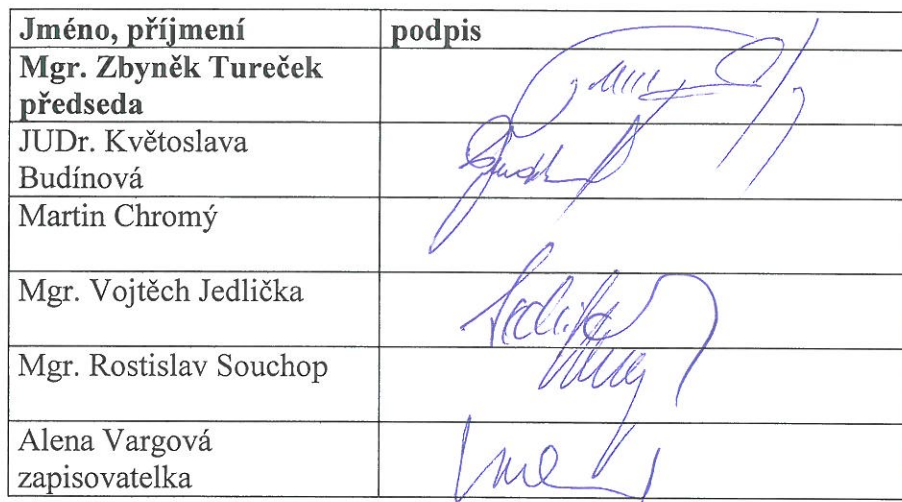 Jméno, příjmení podpis
Mgr. Zbyněk Tureček
předseda
JUDr. Květoslava
Budínová
Martin Chromý
Mgr. Vojtěch Jedlička
Mgr. Rostislav Souchop
Alena Vargová
zapisovatelka